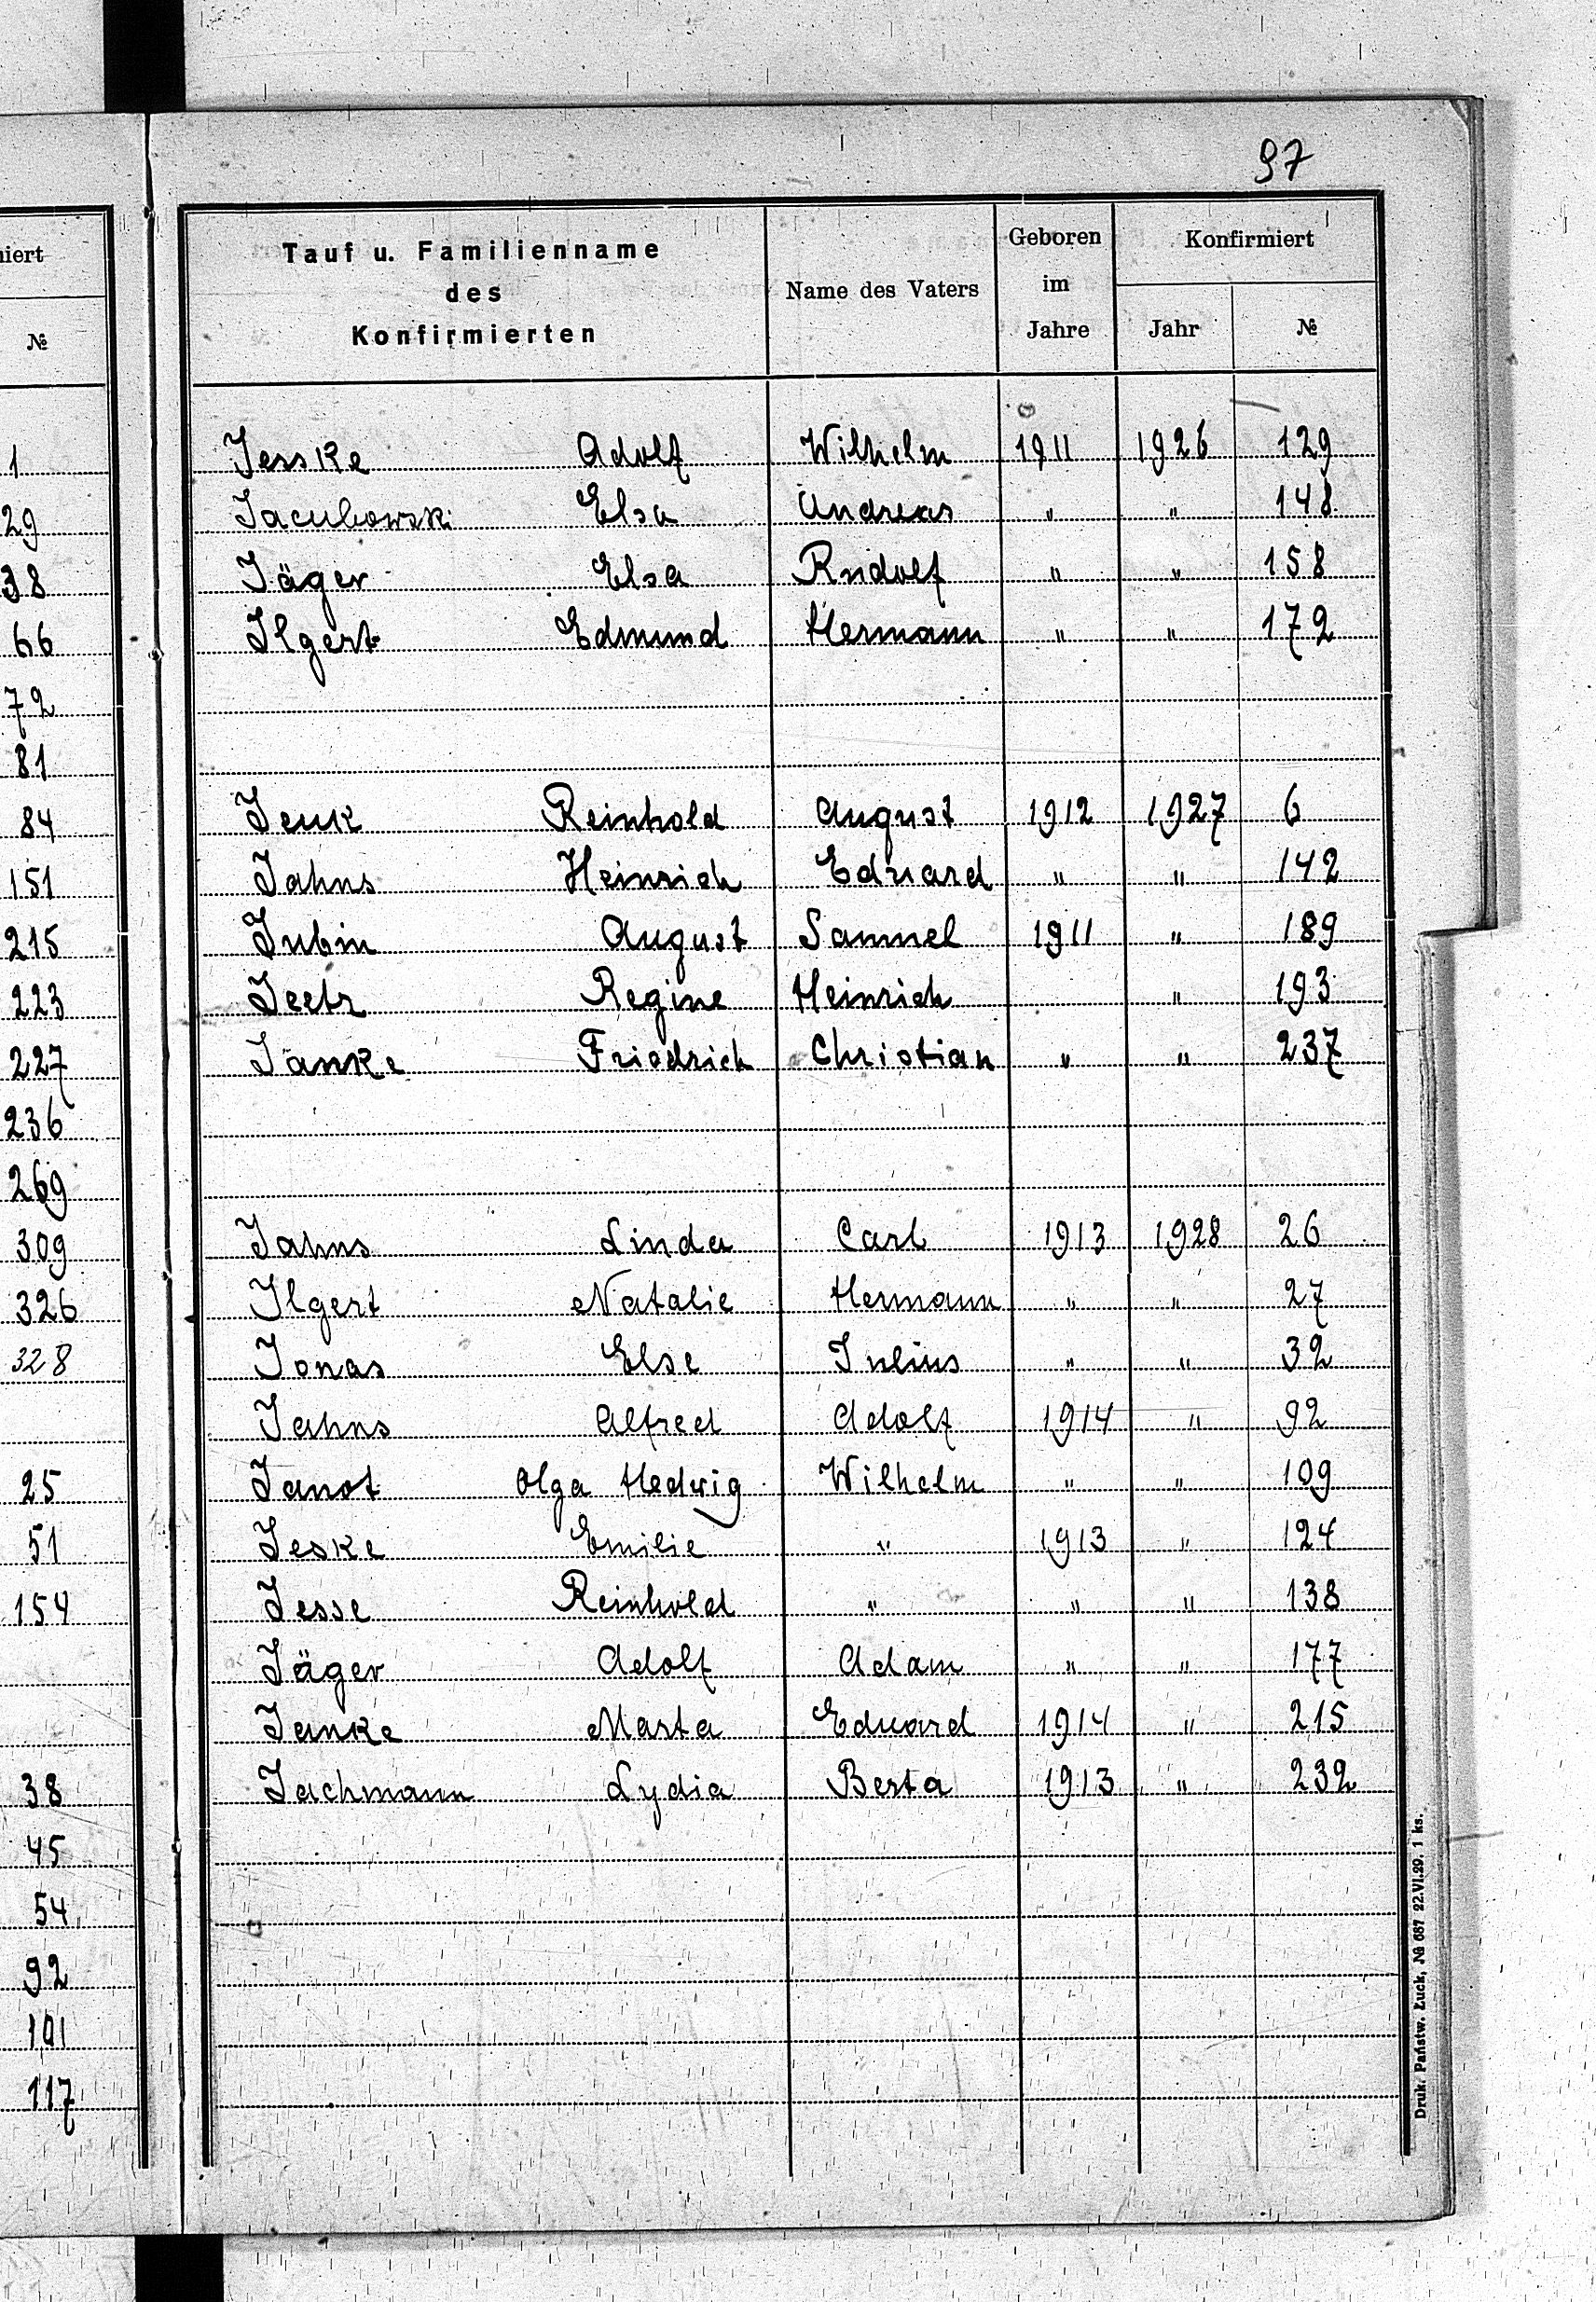 97
niert
№
1
29
38
66
72
81
84
151
215
223
227
236
269
309
326
328
25
51
154
38
45
54
92
101
117
Tauf u. Familienname
des
Konfirmierten
Name des Vaters
Geboren
im
Jahre
Konfirmiert
Jahr
№
Jesske Adolf Wilhelm 1911 1926 129
Jacubowski Elsa Andreas " " 148
Jäger Elsa Rudolf " " 158
Ilgert Edmund Hermann " " 172
Jeuk Reinhold August 1912 1927 6
Jahns Heinrich Eduard " " 142
Jubin August Samuel 1911 " 189
Regine Heinrich " 193
Janke Friedrich Christian " " 237
Jahns Linda Carl 1913 1928 26
Ilgert Natalie Hermann " " 27
Jonas Else Julius " " 32
Jahns Alfred Adolf 1914 " 92
Janot Olga Hedwig Wilhelm " " 109
Jeske Emilie " 1913 " 124
Jesse Reinhold " " " 138
Jäger Adolf Adam " " 177
Janke Marta Eduard 1914 " 215
Jachmann Lydia Berta 1913 " 232
Druk. Państw. Łuck, № 687 22.VI.29. 1 ks.